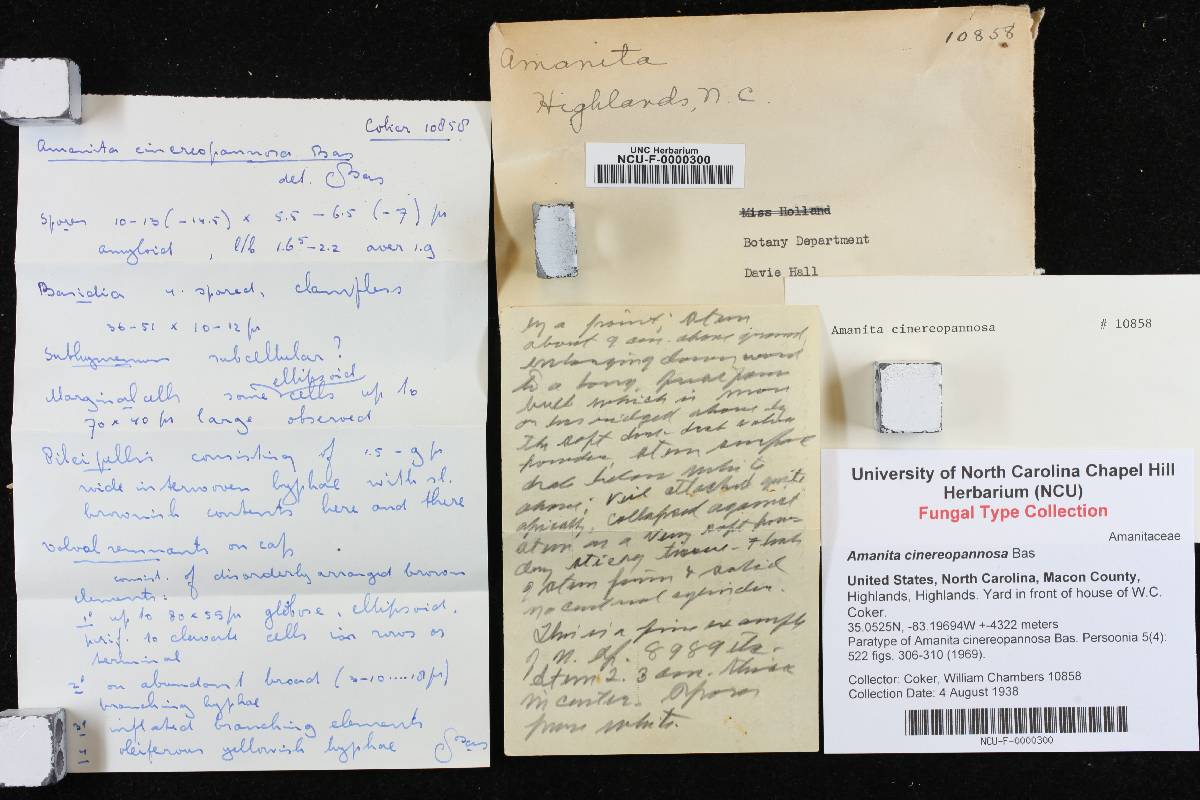 Coker 10858
Amanita cinereopannosa Bas
det. CBas
Spores 10-13 (-14.5) x 5.5 - 6.5 (-7) µ
amyloid, l/b 1.65-2.2 aver 1.9
Basidia 4-spored, clampless
36-51 x 10-12 µ
Subhymenium subcellular?
ellipsoid
Marginal cells some cells up to
70 x 40 µ large observed
Pileipellis consisting of 1.5 - 9 µ
wide interwoven hyphae with sl.
brownish contents here and there
Volval remnants on cap
consist. of disorderly arranged brown
elements:
1° up to 80 x 55 µ globose, ellipsoid,
pirif. to clavate cells in rows or
terminal
2° on abundant broad (3-10....18 µ)
branching hyphae
3° inflated branching elements
oleiferous yellowish hyphae CBas
10858
Amanita
Highlands, N.C.
UNC Herbarium
NCU-F-0000300
Miss Holland
Botany Department
Davie Hall
to a point; stem
about 9 cm. above ground
enlarging downward
to a long,
bulb which is more
or less ridged above by
the soft volva
powder. Stem surface
drab below white
above; veil attached quite
apically, collapsed against
stem as a very soft pow-
dery sticky tissue - flesh
of stem firm & solid
no central cylinder.
This is a fine example
of n. sp. 8989 etc.
Stem 2.3 cm. thick
in center. Spores
pure white.
Amanita cinereopannosa # 10858
University of North Carolina Chapel Hill
Herbarium (NCU)
Fungal Type Collection
Amanitaceae
Amanita cinereopannosa Bas
United States, North Carolina, Macon County,
Highlands, Highlands. Yard in front of house of W.C.
Coker.
35.0525N, -83.19694W +-4322 meters
Paratype of Amanita cinereopannosa Bas. Persoonia 5(4):
522 figs. 306-310 (1969).
Collector: Coker, William Chambers 10858
Collection Date: 4 August 1938
NCU-F-0000300